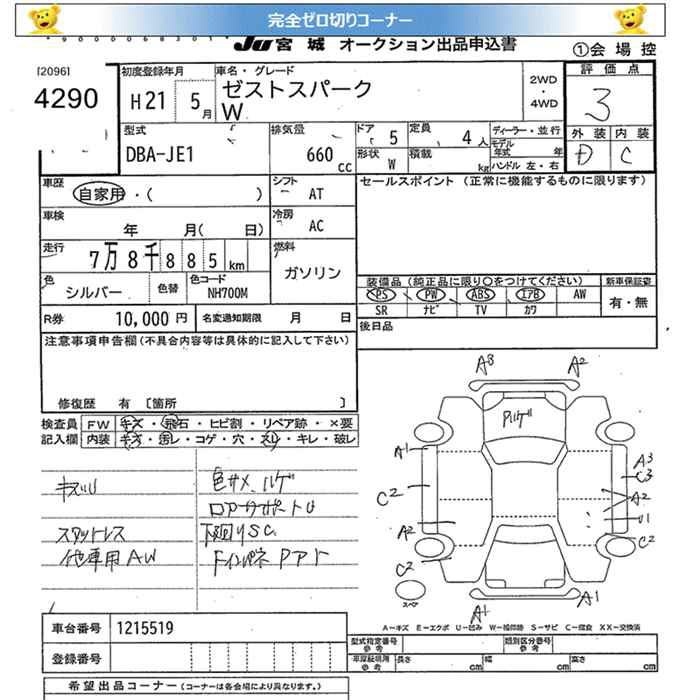 完全ゼロ切りコーナー
JU 宮城 オークション出品申込書
①会場控
[2096]
4290
初度登録年月
H21 5月
車名・グレード
ゼストスパーク
W
2WD
・
4WD
評価点
3
外装 内装
D C
型式
DBA-JE1
排気量
660 cc
ドア 5
形状 W
定員 4人
積載 kg
ディーラー・並行
モデル年式 年
ハンドル 左・右
車歴
自家用・( )
シフト AT
車検
年 月( 日)
冷房 AC
走行
7万8千885km
燃料
ガソリン
色
シルバー
色替
色コード
NH700M
R券 10,000円
名変通知期限 月 日
セールスポイント (正常に機能するものに限ります)
装備品(純正品に限り○をつけてください)
新車保証書
PS PW ABS エアB AW
SR ナビ TV カワ
有・無
後日品
注意事項申告欄(不具合内容等は具体的に記入して下さい)
修復歴 有 〔箇所 〕
検査員記入欄
FW キズ・飛石・ヒビ割・リペア跡・×要
内装 キズ・汚レ・コゲ・穴・スレ・キレ・破レ
スタットレス
他車用AW
色サメ、ハゲ
ロアーサポートU
下廻りSC
A8 A2
Pハゲ
A1
C2
A2
C2
A3
C3
A2
U1
C2
スペア
A1 A1
A−キズ E−エクボ U−凹み W−補修跡 S−サビ C−腐食 XX−交換済
車台番号 1215519
登録番号
型式指定番号
参考
類別区分番号
参考
車庫証明用
参考
長さ cm 幅 cm 高さ cm
希望出品コーナー(コーナーは各会場により異なります。)